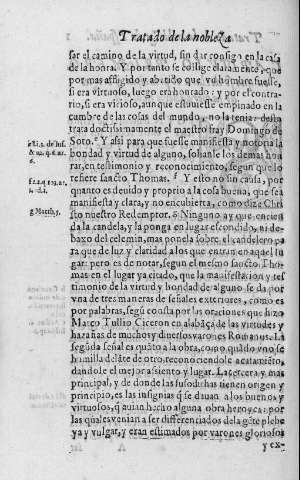 Tratado de la nobleza
sar el camino de la virtud, sin dar consigo en la casa
de la honra. Y por tanto se collige claramente, que
por mas affligido y abatido que vn hombre fuesse,
si era virtuoso, luego era honrado: y por el contra-
rio, si era vicioso, aunque estuuiesse empinado en la
cumbre de las cosas del mundo, no la tenia: desta
trata doctissimamente el maestro fray Domingo de
Soto. Y assi para que fuesse manifiesta y notoria la
bondad y virtud de alguno, solianle los demas hon
rar, en testimonio y reconocimiento, segun que lo
refiere sancto Thomas. Y esto no sin causa, por
quanto es deuido y proprio a la cosa buena, que sea
manifiesta y clara, y no encubierta, como dize Chri
sto nuestro Redemptor. g Ninguno ay que encien
da la candela, y la ponga en lugar escondido, ni de-
baxo del celemin, mas ponela sobre el candelero pa
ra que de luz y claridad a los que entran en aquel lu
gar: pero es de notar, segun el mesmo sancto Tho-
mas en el lugar ya citado, que la manifestacion y tes
timonio de la virtud y bondad de alguno se da por
vna de tres maneras de señales exteriores, como es
por palabras, segũ consta por las oraciones que hizo
Marco Tullio Ciceron en alabãça de las virtudes y
hazañas de muchos y diuersos varones Romanos. La
segũda señal es quãto a la obra, como quãdo vno se
humilla delãte de otro, reconociendole acatamiẽto,
dandole el mejor asiento y lugar. La tercera y mas
principal, y de donde las susodichas tienen origen y
principio, es las insignias q̃ se dauan a los buenos y
virtuosos, q̃ auian hecho alguna obra heroyca: por
las quales venian a ser differenciados de la gẽte plebe
ya y vulgar, y eran estimados por varones gloriosos
y ex-
g Matth. 5.